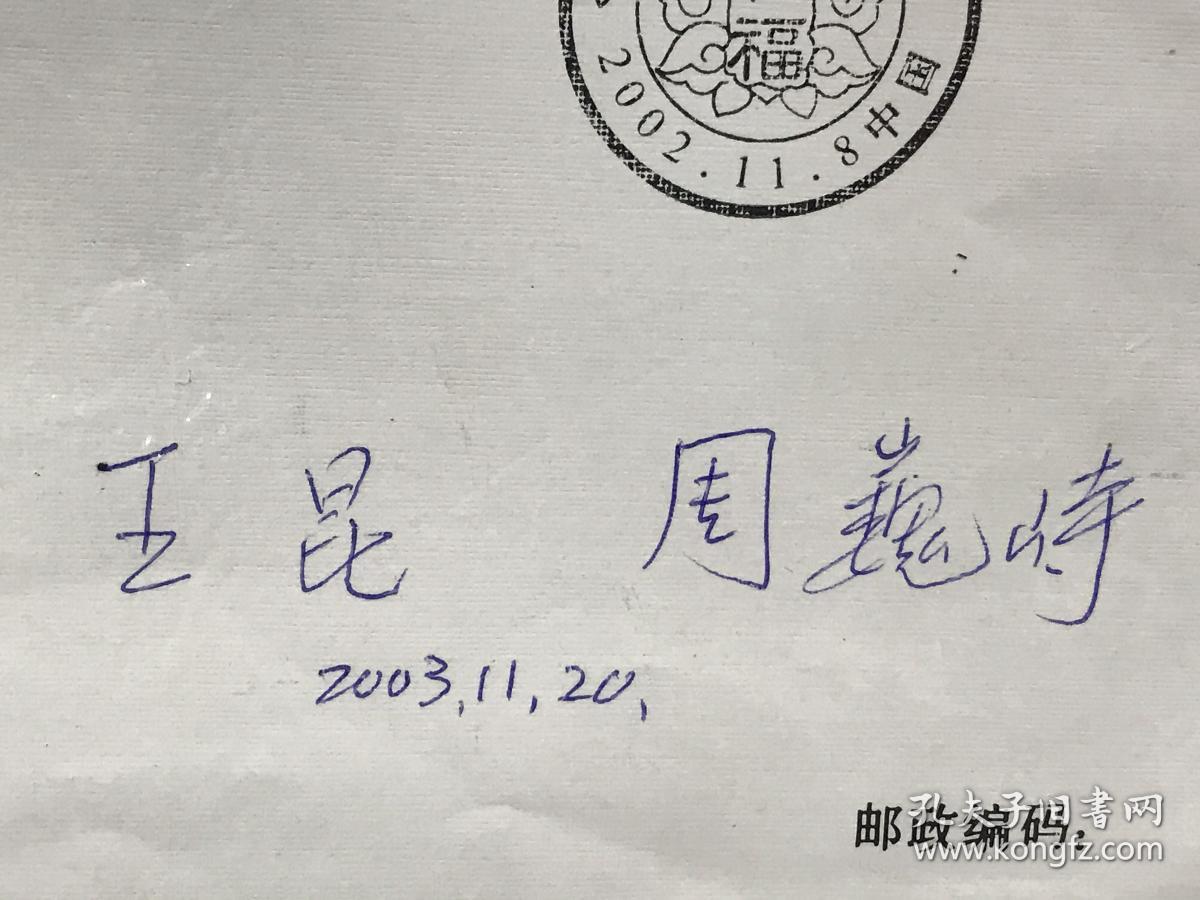 福
2002.11.8中国
王昆 周巍峙
2003,11,20,
邮政编码:
孔夫子旧书网
www.kongfz.com